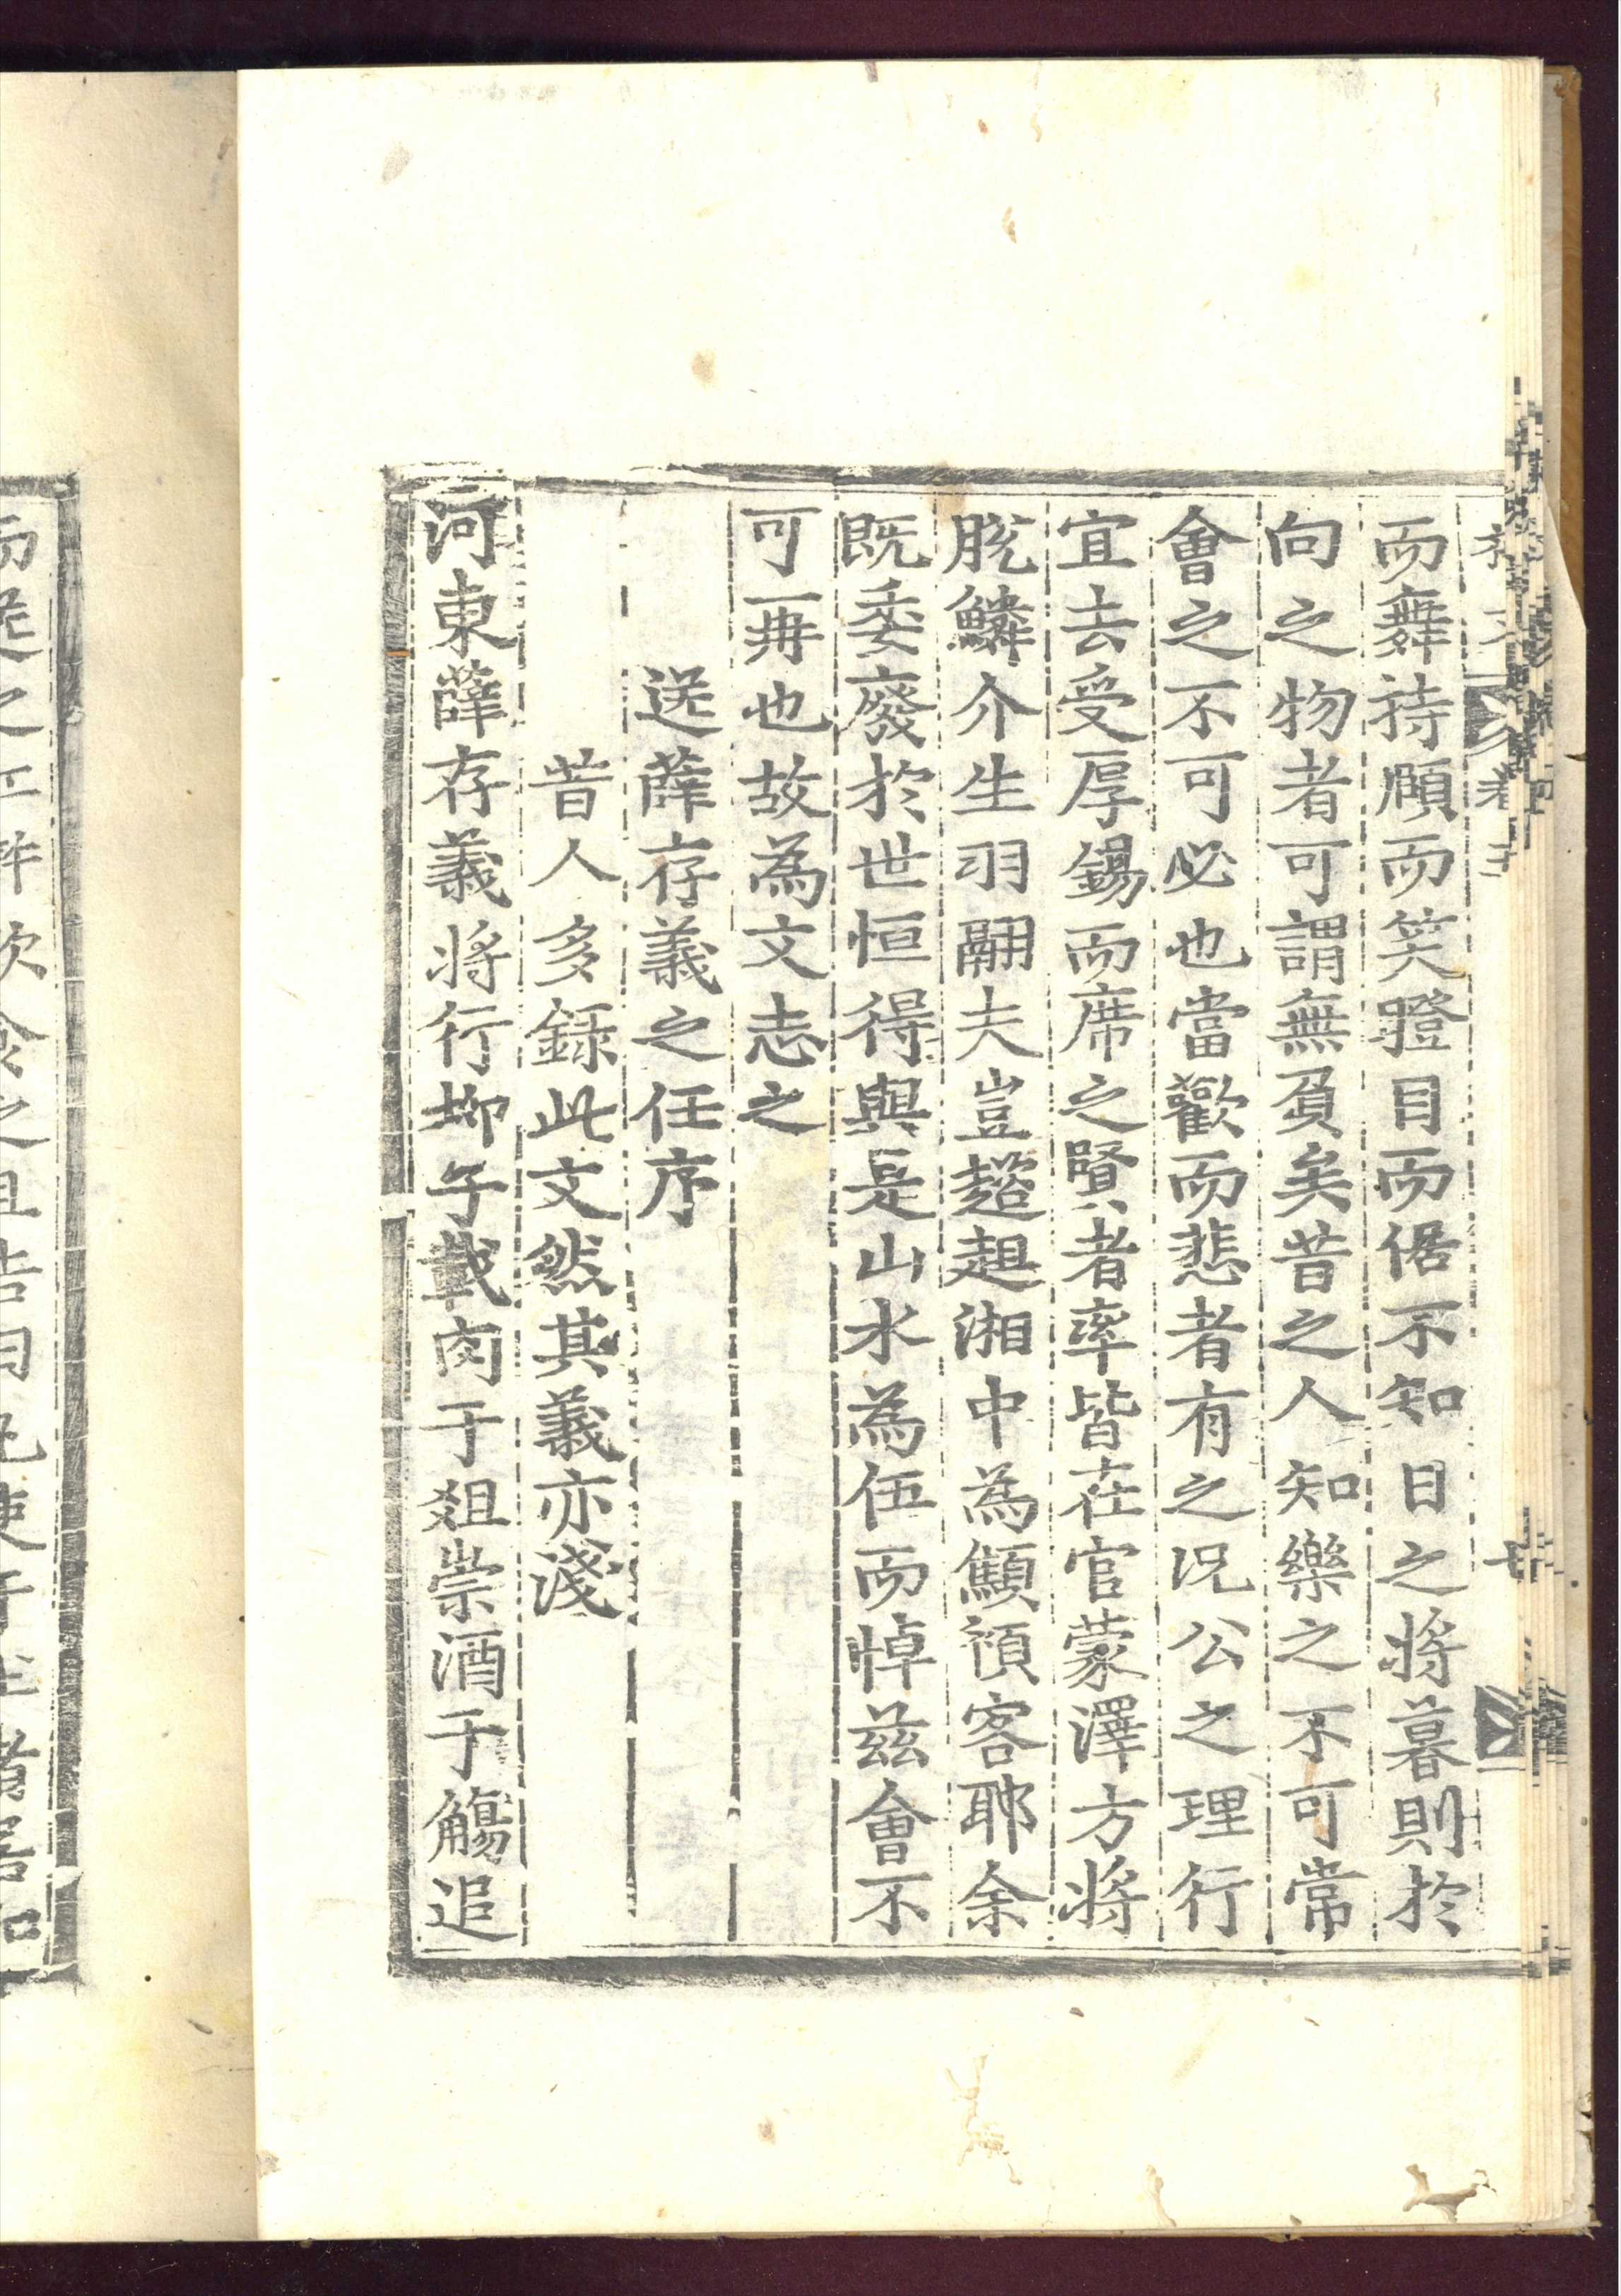 而舞持頤而笑瞪目而倨不知日之將暮則於
向之物者可謂無負矣昔之人知樂之不可常
會之不可必也當歡而悲者有之况公之理行
宜去受厚錫而席之賢者率皆在官蒙澤方將
脫鱗介生羽翮夫豈趦趄湘中為顦顇客耶余
既委廢於世恒得與是山水為伍而悼茲會不
可再也故為文志之
送薛存義之任序
昔人多錄此文然其義亦淺
河東薛存義將行柳子載肉于俎崇酒于觴追